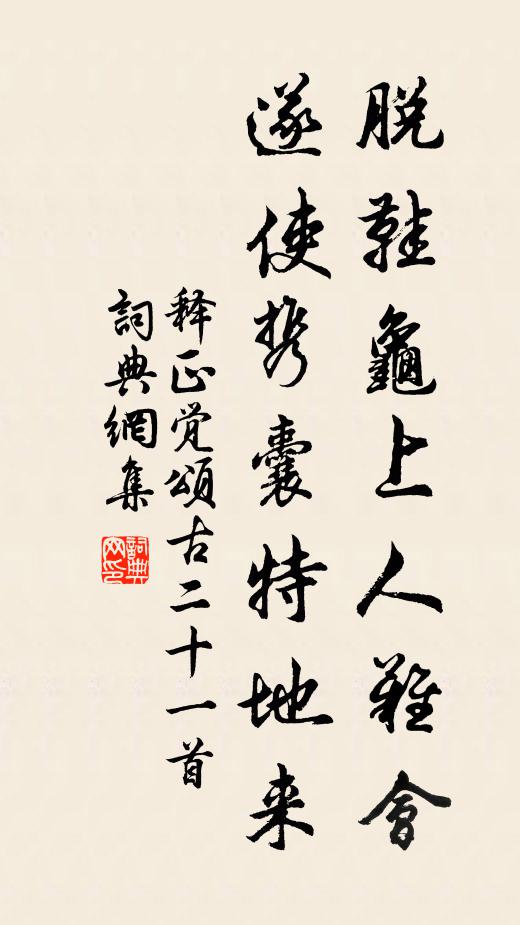 脱鞋龜上人難會
遂使携囊特地来
释正觉頌古二十一首
詞典網集
詞典网印